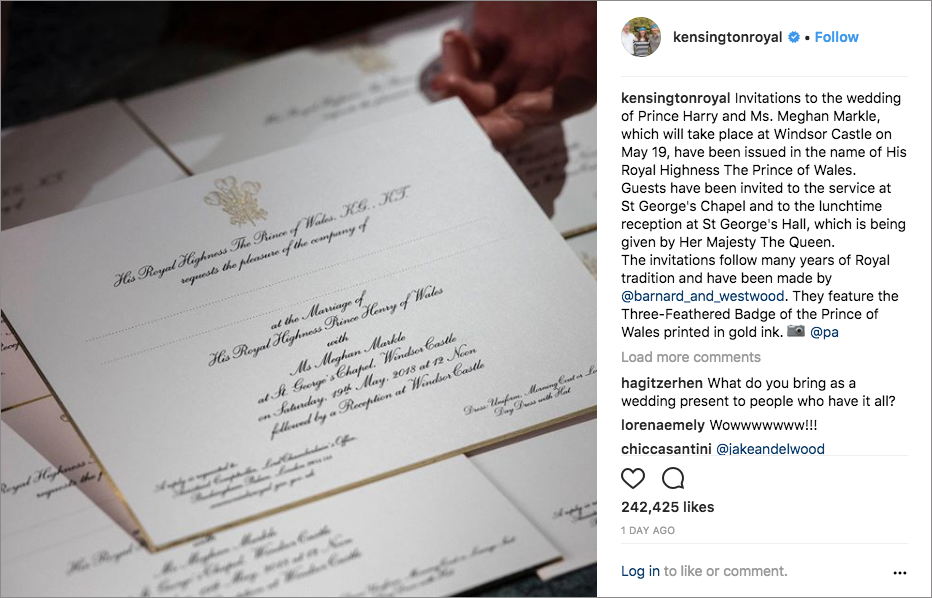 His Royal Highness The Prince of Wales, K.G., K.T.
requests the pleasure of the company of
at the Marriage of
His Royal Highness Prince Henry of Wales
with
Ms Meghan Markle
at St. George's Chapel, Windsor Castle
on Saturday, 19th May, 2018 at 12 Noon
followed by a Reception at Windsor Castle
Dress: Uniform, Morning Coat or Lo
Day Dress with Hat
A reply is requested to:
Lord Chamberlain's Office,
Buckingham Palace, London
requests the
His Royal
Ms Meghan Markle
George's Chapel, Windsor Castle
19th May, 2018 at 12 Noon
Reception at Windsor Castle
kensingtonroyal • Follow
kensingtonroyal Invitations to the wedding
of Prince Harry and Ms. Meghan Markle,
which will take place at Windsor Castle on
May 19, have been issued in the name of His
Royal Highness The Prince of Wales.
Guests have been invited to the service at
St George's Chapel and to the lunchtime
reception at St George's Hall, which is being
given by Her Majesty The Queen.
The invitations follow many years of Royal
tradition and have been made by
@barnard_and_westwood. They feature the
Three-Feathered Badge of the Prince of
Wales printed in gold ink. 📷 @pa
Load more comments
hagitzerhen What do you bring as a
wedding present to people who have it all?
lorenaemely Wowwwwwww!!!
chiccasantini @jakeandelwood
242,425 likes
1 DAY AGO
Log in to like or comment.